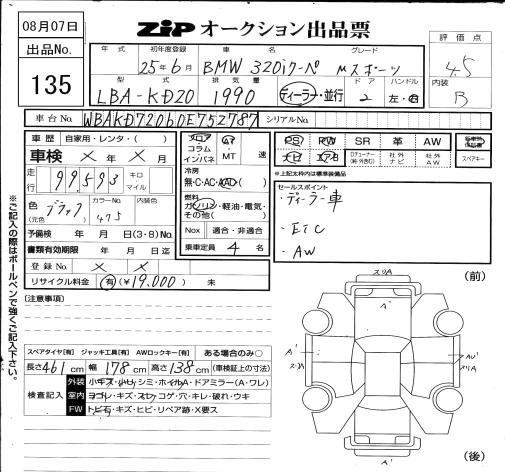 08月07日
ZiP オークション出品票
出品No.
135
年式 初年度登録 車名 グレード
25年6月 BMW 320iクーペ Mスポーツ
型式 排気量 ドア ハンドル
LBA-KD20 1990 ディーラー・並行 2 左・右
評価点
4.5
内装
B
車台No. WBAKD720X0E752787 シリアルNo.
車歴 自家用・レンタ・( )
車検 × 年 × 月
走行 99,593 キロ マイル
色(元色) ブラック カラーNo. 475 内装色
予備検 年 月 日(3・8)No.
書類有効期限 年 月 日迄
登録No. × ×
リサイクル料金 有(¥19,000)
フロア コラム インパネ
AT・MT 速
冷房
無・C・AC・AAC
燃料
ガソリン・軽油・電気・その他( )
Nox 適合・非適合
乗車定員 4 名
PS PW SR 革 AW
ナビ エアB TVチューナー(純・外含む) 社外ナビ 社外AW
スペアキー
※上記太枠内は標準装備品
セールスポイント
・ディーラー車
・ETC
・AW
※ご記入の際はボールペンで強くご記入下さい。
(注意事項)
スペアタイヤ[有] ジャッキ工具[有] AWロックキー[有] ある場合のみ○
長さ461cm 幅178cm 高さ138cm (車検証上の寸法)
検査記入
外装 小キズ・小ヒ・シミ・ホイルA・ドアミラー(A・ワレ)
室内 ヨゴレ・キズ・スレ・コゲ・穴・キレ・破れ・ウキ
FW トビ石・キズ・ヒビ・リペア跡・X要ス
(前)
スリA
A'
A'
スリA
AU'
スリA
A'
(後)